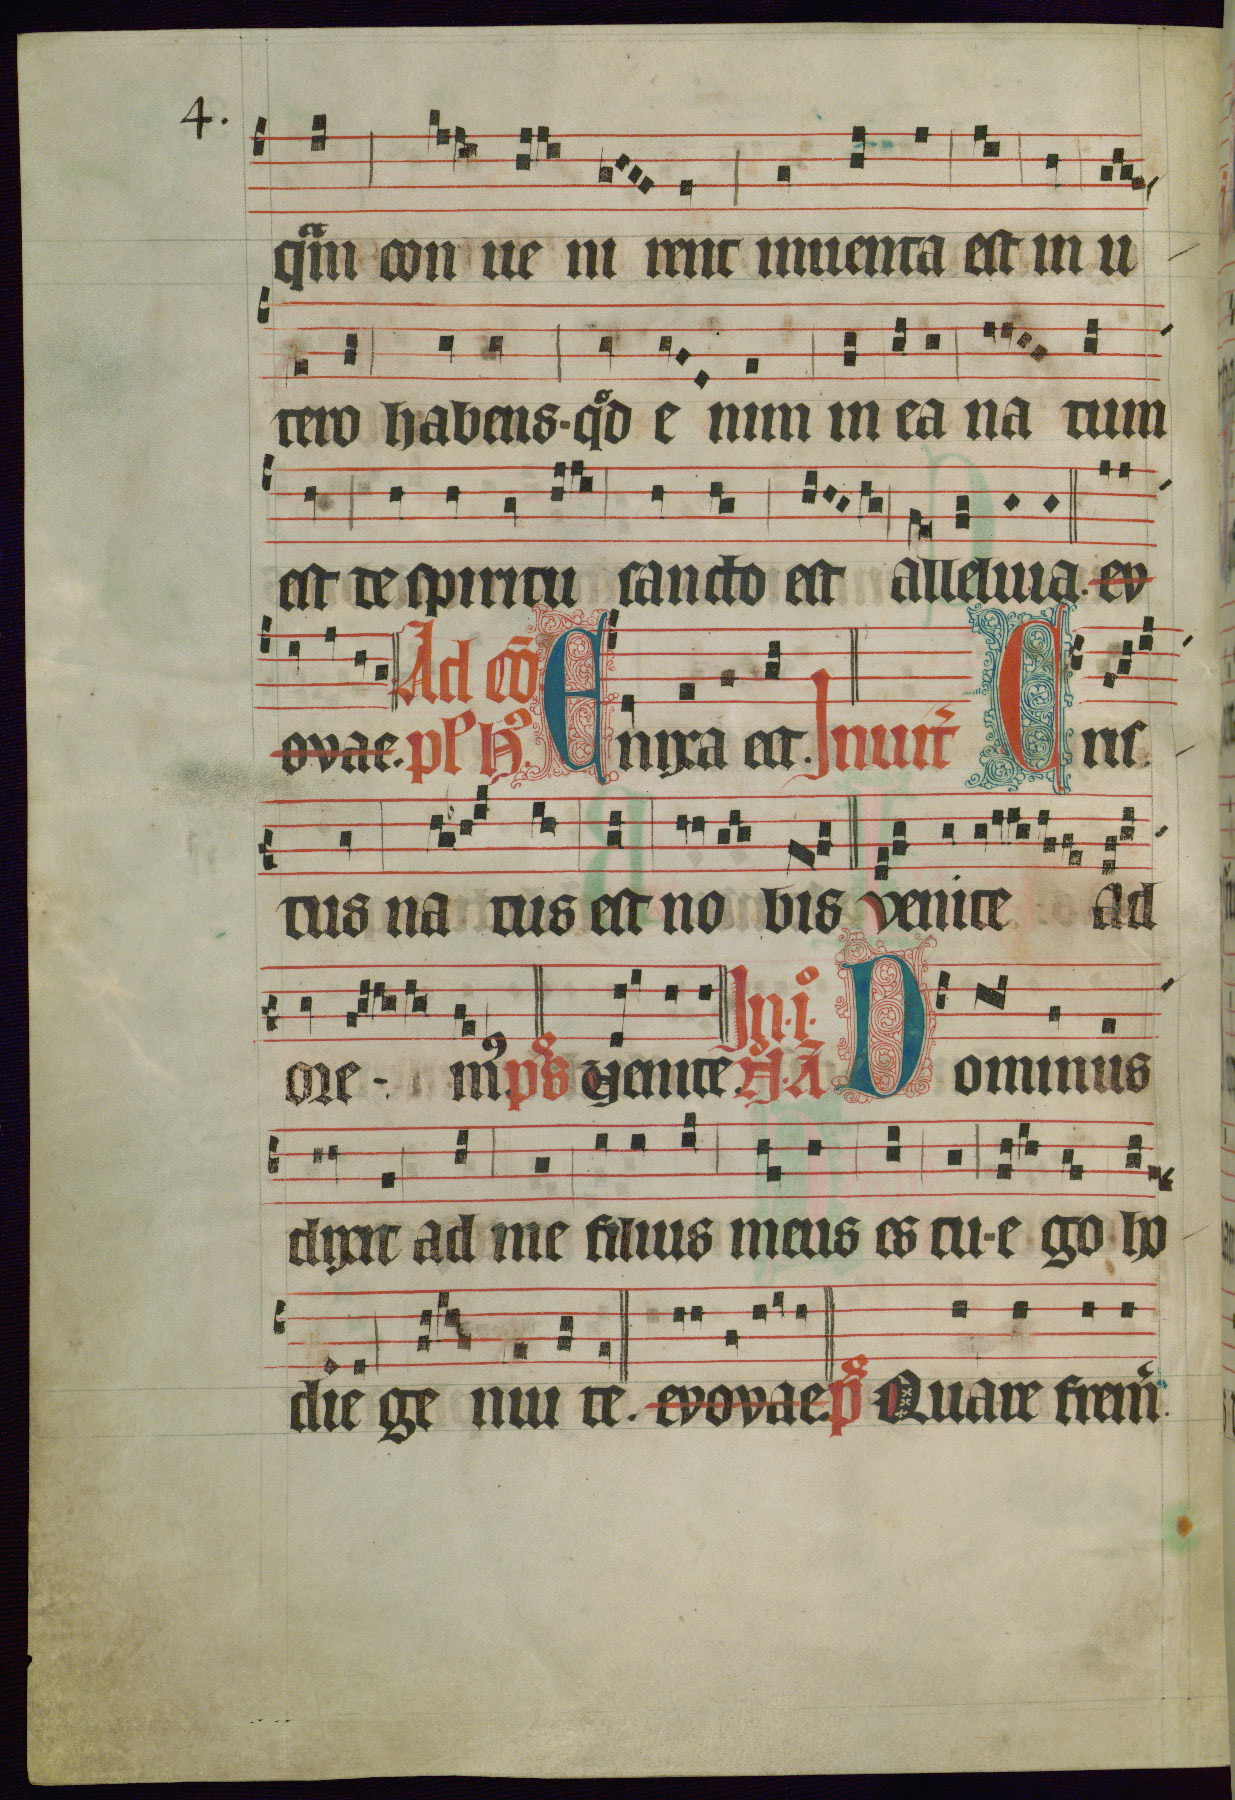 4.
qͣm con ue ni rent inuenta est in u
tero habens. qͦd e nim in ea na tum
est de spiritu sancto est alleluia. ev
ovae. Ad cō pſ hꝰ. Enixa est. Inuit Cris
tus na tus est no bis venite ad
ore - mꝰ ps Venite. In .i. ā Dominus
dixit ad me filius meus es tu. e go ho
die ge nui te. evovae. ps Quare frem̄